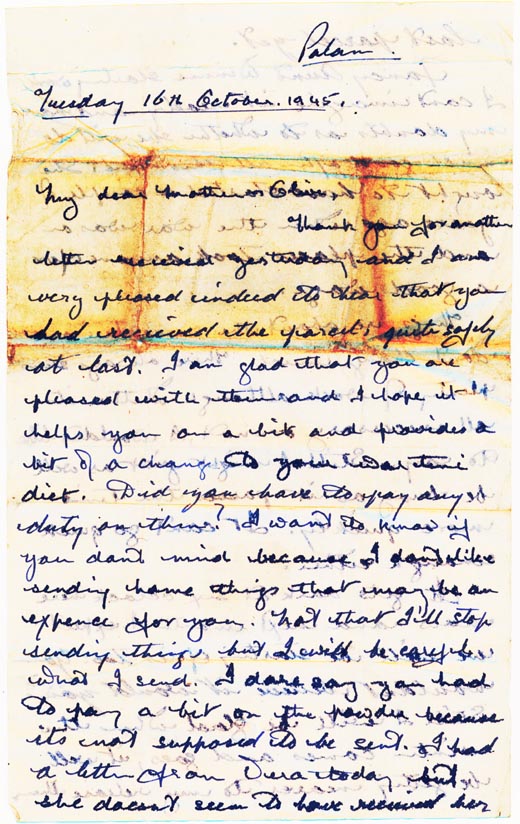 Palam.
Tuesday 16th October. 1945.
My dear Mother & Olive,
Thank you for another
letter received yesterday and I am
very pleased indeed to hear that you
had received the parcels quite safely
at last. I am glad that you are
pleased with them and I hope it
helps you on a bit and provides a
bit of a change to your war time
diet. Did you have to pay any
duty on them? I want to know if
you don't mind because I don't like
sending home things that may be an
expence for you. Not that I'll stop
sending things but I will be careful
what I send. I dare say you had
to pay a bit on the powder because
its not supposed to be sent. I had
a letter from Vera today but
she doesn't seem to have received her